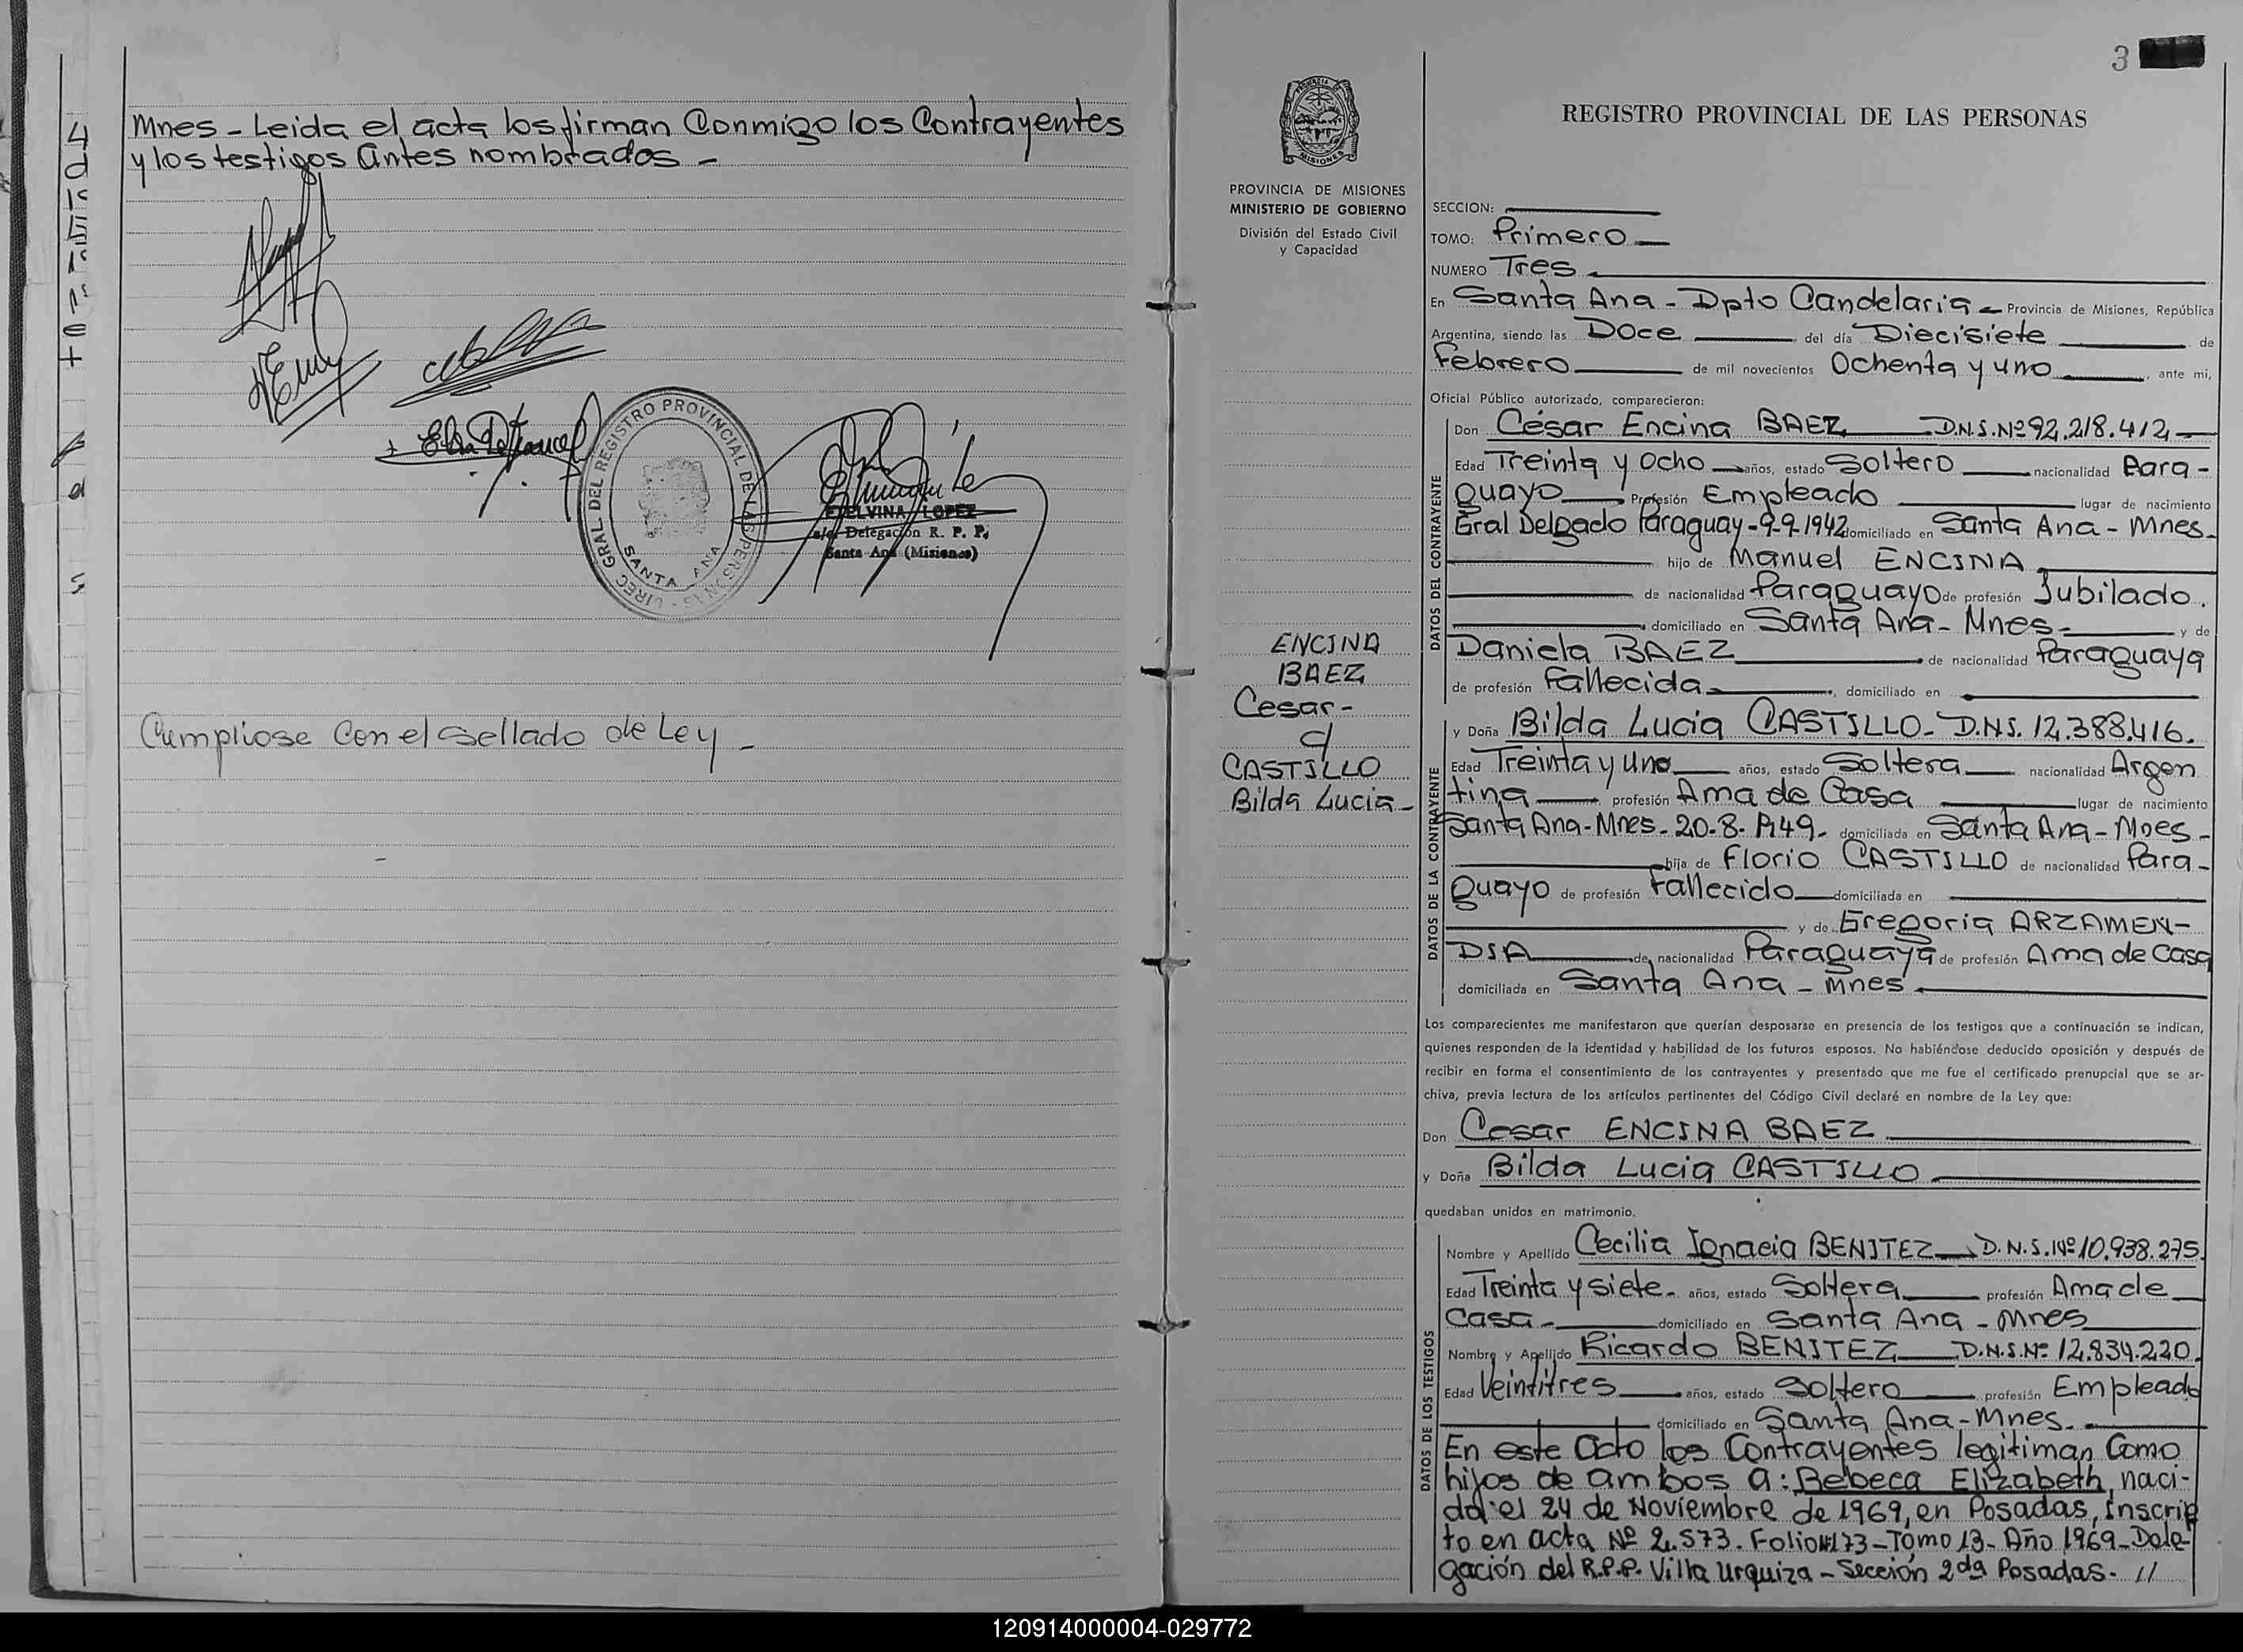 Mnes - Leida el acta los firman Conmigo los Contrayentes
y los testigos Antes nombrados -
DIREC. GRAL. DEL REGISTRO PROVINCIAL DE LAS PERSONAS
SANTA ANA
ETELVINA LOPEZ
a/c. Delegación R. P. P.
Santa Ana (Misiones)
Cumpliose Con el Sellado de Ley -
3
MISIONES
PROVINCIA DE MISIONES
MINISTERIO DE GOBIERNO
División del Estado Civil
y Capacidad
ENCINA
BAEZ
Cesar -
c/
CASTILLO
Bilda Lucia -
REGISTRO PROVINCIAL DE LAS PERSONAS
SECCION:
TOMO: Primero
NUMERO Tres
En Santa Ana - Dpto Candelaria - Provincia de Misiones, República
Argentina, siendo las Doce del día Diecisiete de
Febrero de mil novecientos Ochenta y uno, ante mi,
Oficial Público autorizado, comparecieron:
DATOS DEL CONTRAYENTE
Don César Encina BAEZ D.N.I. Nº 92.218.412
Edad Treinta y Ocho años, estado Soltero nacionalidad Para-
guayo Profesión Empleado lugar de nacimiento
Gral Delgado Paraguay - 9.9.1942 domiciliado en Santa Ana - Mnes.
hijo de Manuel ENCINA
de nacionalidad Paraguayo de profesión Jubilado.
domiciliado en Santa Ana - Mnes. y de
Daniela BAEZ de nacionalidad Paraguaya
de profesión Fallecida, domiciliado en
DATOS DE LA CONTRAYENTE
y Doña Bilda Lucia CASTILLO - D.N.I. 12.388.416.
Edad Treinta y Uno años, estado Soltera nacionalidad Argen
tina profesión Ama de Casa lugar de nacimiento
Santa Ana - Mnes - 20-8-1949 - domiciliada en Santa Ana - Mnes -
hija de Florio CASTILLO de nacionalidad Para-
guayo de profesión Fallecido domiciliada en
y de Gregoria ARZAMEN-
DIA de nacionalidad Paraguaya de profesión Ama de Casa
domiciliada en Santa Ana - Mnes.
Los comparecientes me manifestaron que querían desposarse en presencia de los testigos que a continuación se indican,
quienes responden de la identidad y habilidad de los futuros esposos. No habiéndose deducido oposición y después de
recibir en forma el consentimiento de los contrayentes y presentado que me fue el certificado prenupcial que se ar-
chiva, previa lectura de los artículos pertinentes del Código Civil declaré en nombre de la Ley que:
Don Cesar ENCINA BAEZ
y Doña Bilda Lucia CASTILLO
quedaban unidos en matrimonio.
DATOS DE LOS TESTIGOS
Nombre y Apellido Cecilia Ignacia BENITEZ D.N.I. Nº 10.938.275.
Edad Treinta y siete - años, estado Soltera profesión Ama de
Casa - domiciliado en Santa Ana - Mnes
Nombre y Apellido Ricardo BENITEZ D.N.I. Nº 12.834.220.
Edad Veintitres años, estado Soltero profesión Empleado
domiciliado en Santa Ana - Mnes.
En este Acto los Contrayentes legitiman Como
hijos de ambos a: Bebeca Elizabeth, naci-
da el 24 de Noviembre de 1969, en Posadas, Inscrip
to en acta Nº 2.573. Folio 173 - Tomo 13 - Año 1969 - Dele-
gación del R.P.P. Villa Urquiza - Sección 2da Posadas - //
120914000004-029772